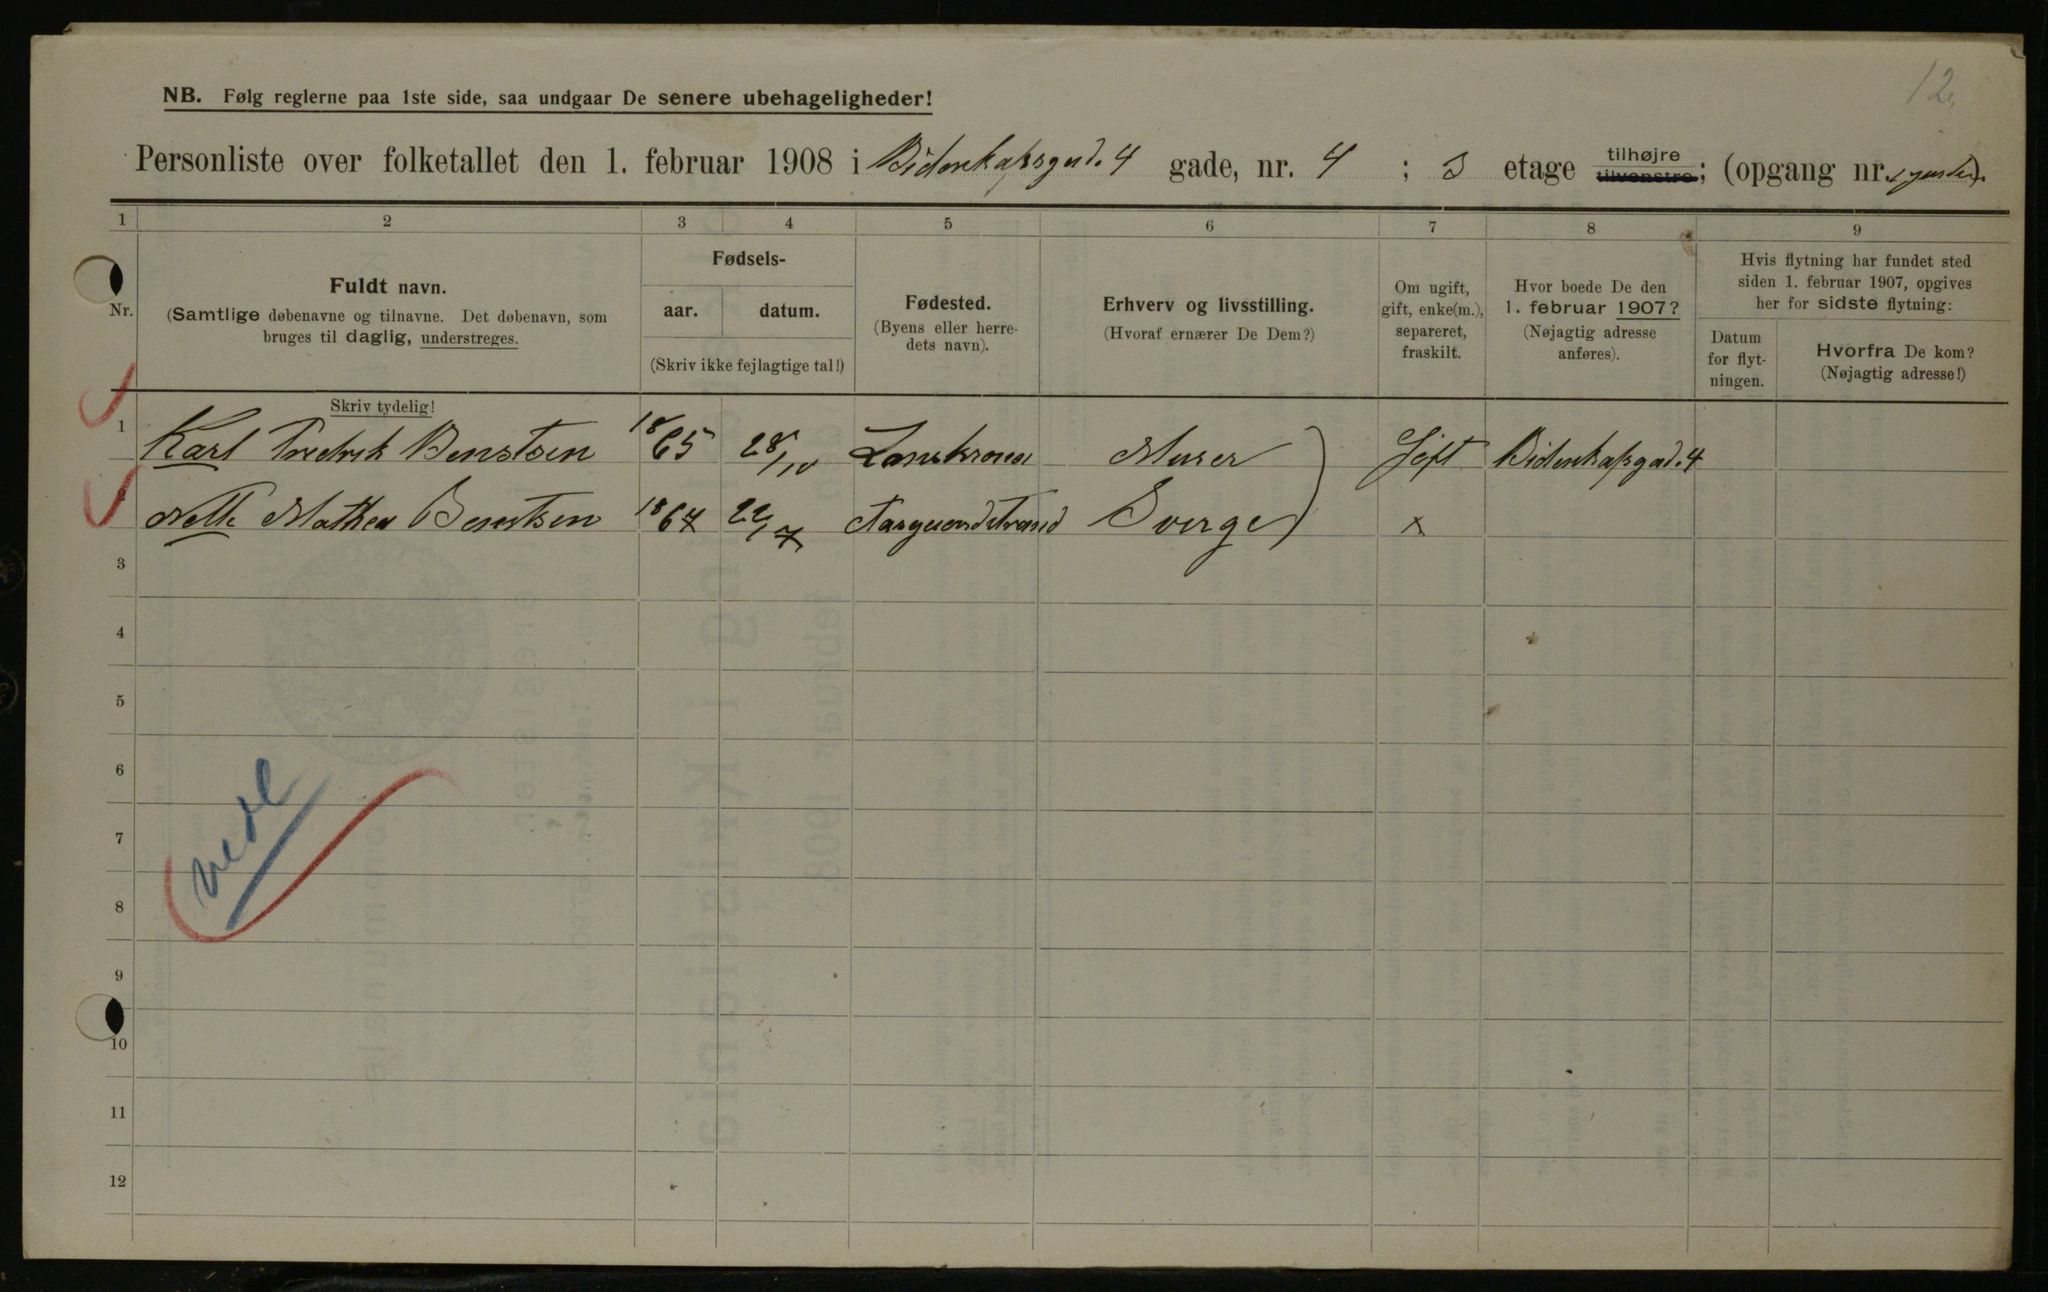 12.
NB. Følg reglerne paa 1ste side, saa undgaar De senere ubehageligheder!
Personliste over folketallet den 1. februar 1908 i Bidenkapsgad. 4 gade, nr. 4 ; 3 etage tilhøjre tilvenstre; (opgang nr. ).
1 2 3 4 5 6 7 8 9
Nr.
Fuldt navn.
(Samtlige døbenavne og tilnavne. Det døbenavn, som
bruges til daglig, understreges.
Skriv tydelig!
Fødsels-
aar. datum.
(Skriv ikke fejlagtige tal!)
Fødested.
(Byens eller herre-
dets navn).
Erhverv og livsstilling.
(Hvoraf ernærer De Dem?)
Om ugift,
gift, enke(m.),
separeret,
fraskilt.
Hvor boede De den
1. februar 1907?
(Nøjagtig adresse
anføres).
Hvis flytning har fundet sted
siden 1. februar 1907, opgives
her for sidste flytning:
Datum
for flyt-
ningen.
Hvorfra De kom?
(Nøjagtig adresse!)
1 Karl Fredrik Benstsen 1865 28/10 Lanskrona Murer Gift Bidenkapsgad. 4
2 Nelle Mathea Benstsen 1867 22/7 Aasgaardstrand Sverge x
3
4
5
6
7
8
9
10
11
12